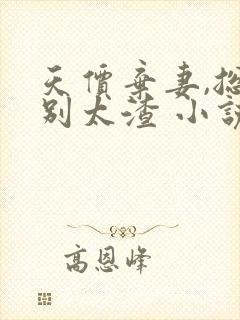 天價棄妻,總
別太渣 小說
高恩峰